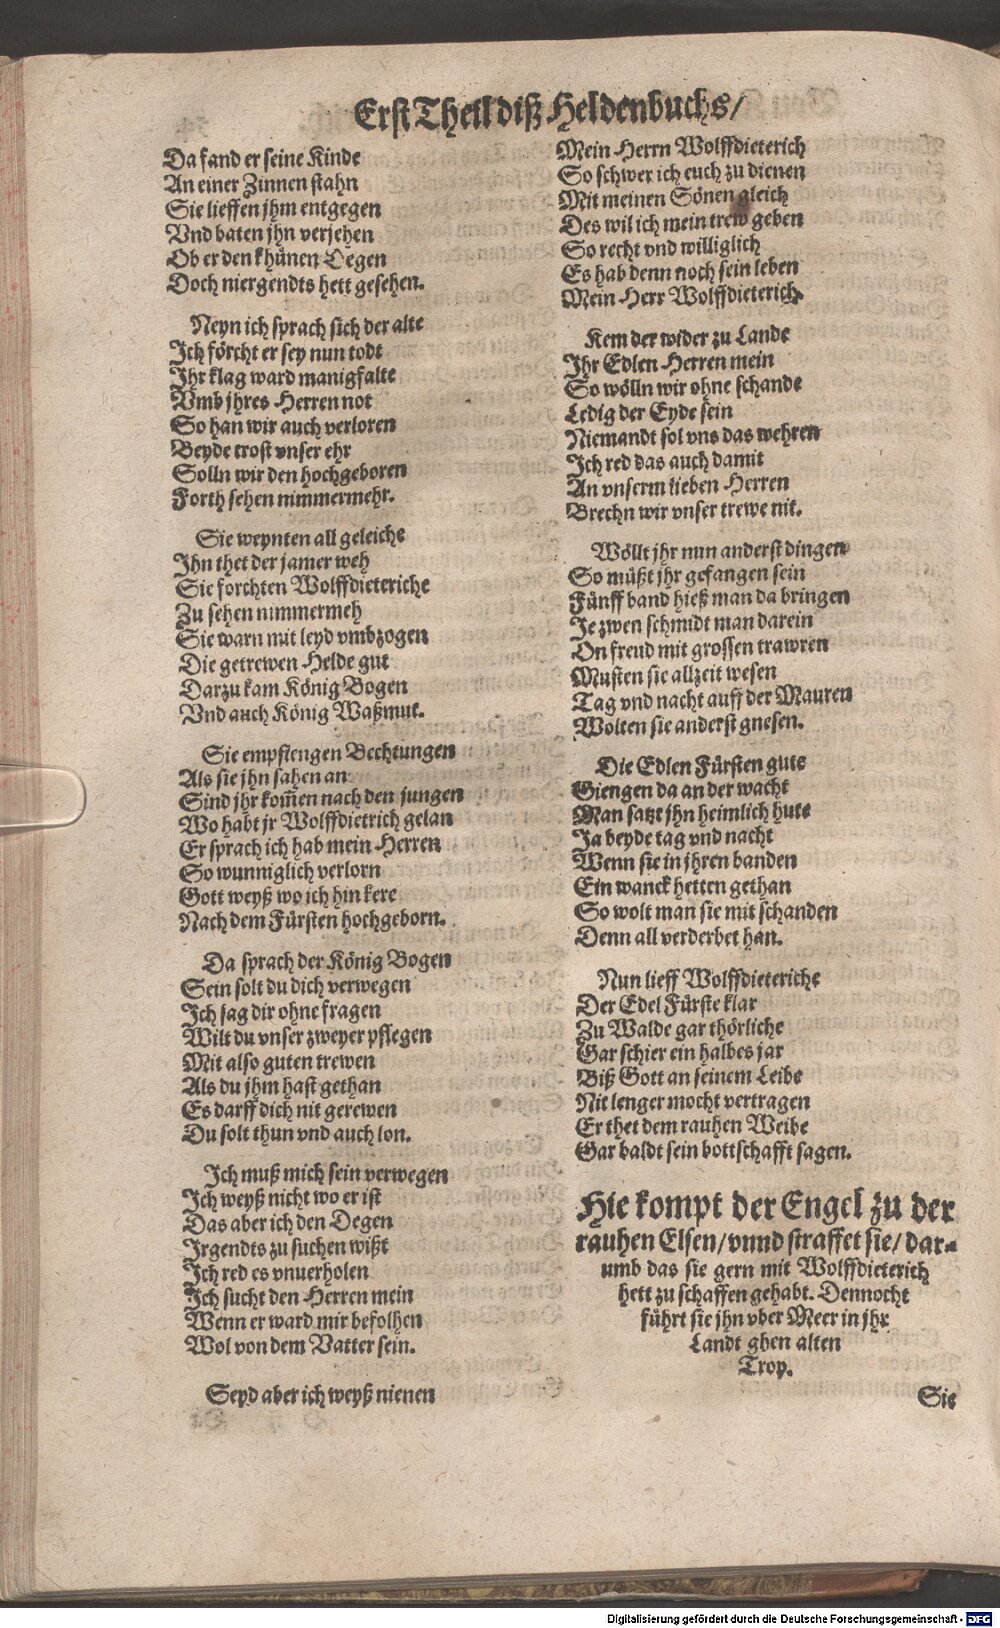 Erst Theil diß Heldenbuchs/
Da fand er seine Kinde
An einer Zinnen stahn
Sie lieffen jhm entgegen
Vnd baten jhn verjehen
Ob er den khünen Degen
Doch niergendts hett gesehen.
Neyn ich sprach sich der alte
Ich förcht er sey nun todt
Ihr klag ward manigfalte
Vmb jhres Herren not
So han wir auch verloren
Beyde trost vnser ehr
Solln wir den hochgeboren
Forth sehen nimmermehr.
Sie weynten all geleiche
Ihn thet der jamer weh
Sie forchten Wolffdieteriche
Zu sehen nimmermeh
Sie warn mit leyd vmbzogen
Die getrewen Helde gut
Darzu kam König Bogen
Vnd auch König Waßmut.
Sie empfiengen Bechtungen
Als sie jhn sahen an
Sind jhr kom̄en nach den jungen
Wo habt jr Wolffdietrich gelan
Er sprach ich hab mein Herren
So wunniglich verlorn
Gott weyß wo ich hin kere
Nach dem Fürsten hochgeborn.
Da sprach der König Bogen
Sein solt du dich verwegen
Ich sag dir ohne fragen
Wilt du vnser zweyer pflegen
Mit also guten trewen
Als du jhm hast gethan
Es darff dich nit gerewen
Du solt thun vnd auch lon.
Ich muß mich sein verwegen
Ich weyß nicht wo er ist
Das aber ich den Degen
Irgendts zu suchen wißt
Ich red es vnuerholen
Ich sucht den Herren mein
Wenn er ward mir befolhen
Wol von dem Vatter sein.
Seyd aber ich weyß nienen
Mein Herrn Wolffdieterich
So schwer ich euch zu dienen
Mit meinen Sönen gleich
Des wil ich mein trew geben
So recht vnd williglich
Es hab denn noch sein leben
Mein Herr Wolffdieterich.
Kem der wider zu Lande
Ihr Edlen Herren mein
So wölln wir ohne schande
Ledig der Eyde sein
Niemandt sol vns das wehren
Ich red das auch damit
An vnserm lieben Herren
Brechn wir vnser trewe nit.
Wöllt jhr nun anderst dingen
So müßt jhr gefangen sein
Fünff band hieß man da bringen
Je zwen schmidt man darein
On freud mit grossen trawren
Musten sie allzeit wesen
Tag vnd nacht auff der Mauren
Wolten sie anderst gnesen.
Die Edlen Fürsten gute
Giengen da an der wacht
Man satzt jhn heimlich hute
Ja beyde tag vnd nacht
Wenn sie in jhren banden
Ein wanck hetten gethan
So wolt man sie mit schanden
Denn all verderbet han.
Nun lieff Wolffdieteriche
Der Edel Fürste klar
Zu Walde gar thörliche
Gar schier ein halbes jar
Biß Gott an seinem Leibe
Nit lenger mocht vertragen
Er thet dem rauhen Weibe
Gar baldt sein bottschafft sagen.
Hie kompt der Engel zu der
rauhen Elsen/ vnnd straffet sie/ dar-
umb das sie gern mit Wolffdieterich
hett zu schaffen gehabt. Dennocht
führt sie jhn vber Meer in jhr
Landt ghen alten
Troy.
Sie
Digitalisierung gefördert durch die Deutsche Forschungsgemeinschaft - DFG